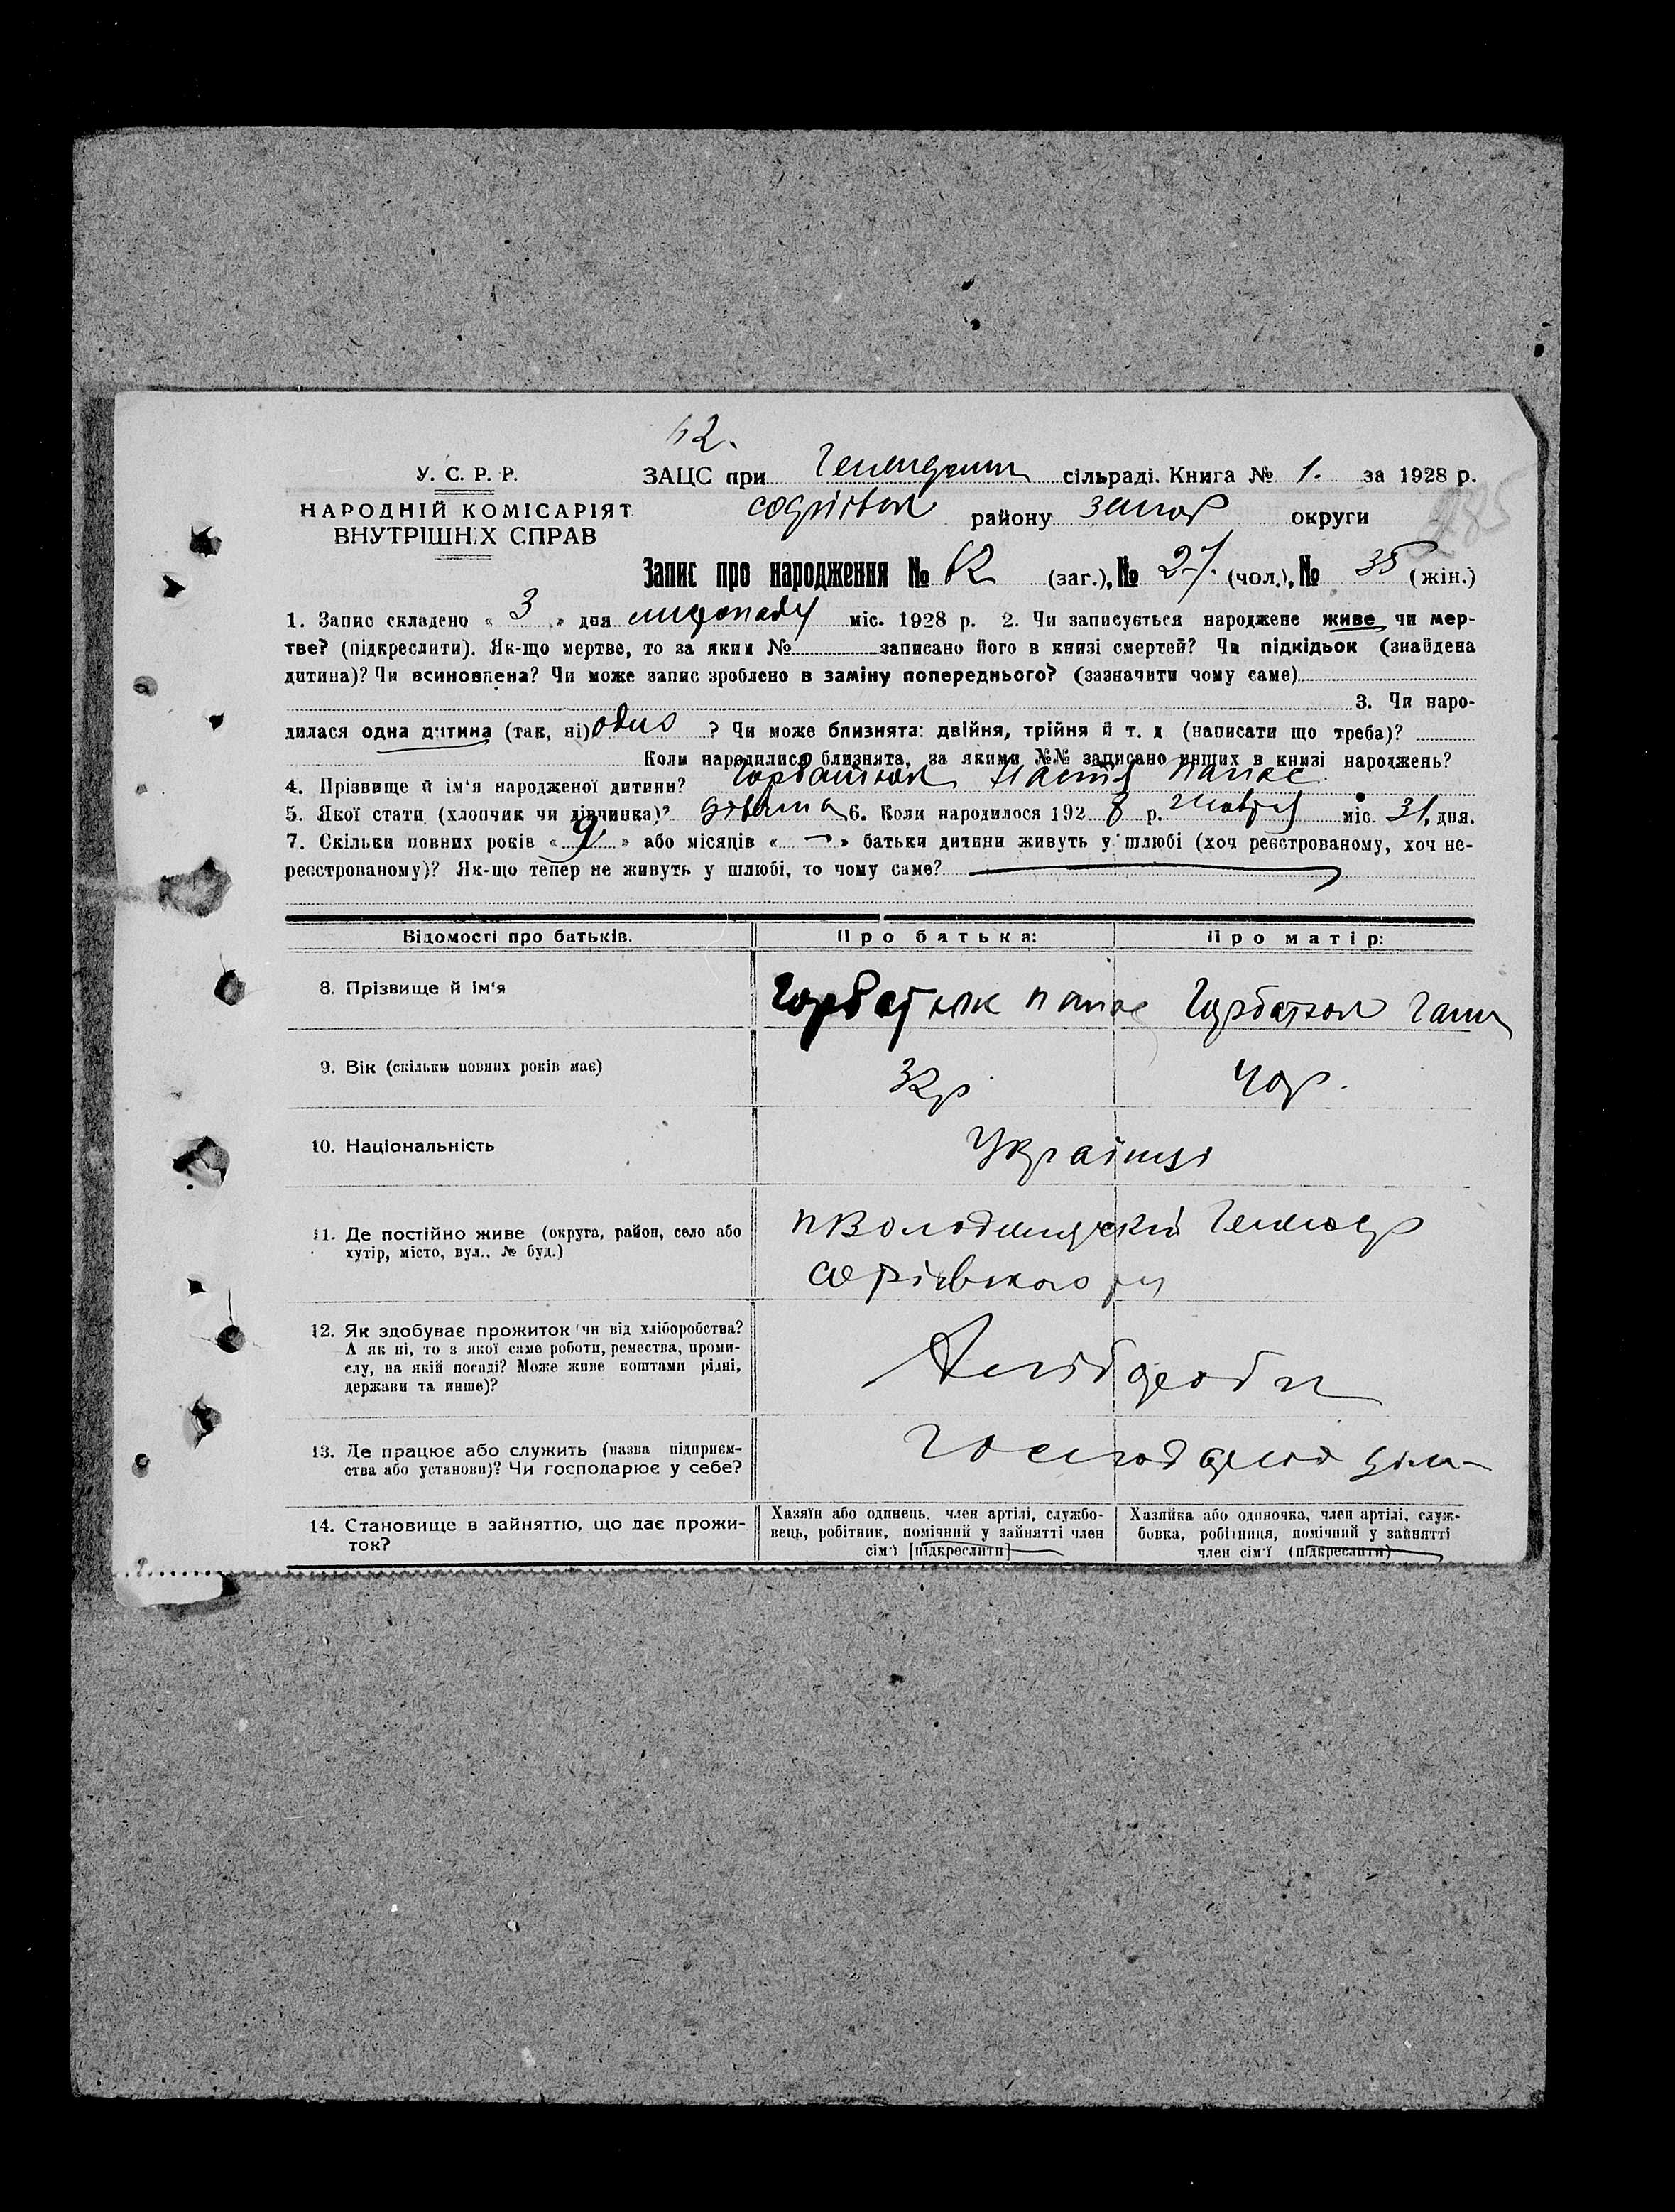 62.
У. С. Р. Р.
ЗАЦС при сільраді. Книга № 1. за 1928 р.
НАРОДНІЙ КОМІСАРІЯТ
ВНУТРІШНІХ СПРАВ
району запор округи
285
Запис про народження № 62 (заг.), № 27. (чол.), № 35 (жін.)
1. Запис складено « 3 » дня листопаду міс. 1928 р. 2. Чи записується народжене живе чи мер-
тве? (підкреслити). Як-що мертве, то за яким № записано його в книзі смертей? Чи підкідьок (знайдена
дитина)? Чи всиновлена? Чи може запис зроблено в заміну попереднього? (зазначити чому саме)
3. Чи наро-
дилася одна дитина (так, ні) одно ? Чи може близнята: двійня, трійня й т. д (написати що треба)?
Коли народилися близнята, за якими №№ записано инших в книзі народжень?
4. Прізвище й ім'я народженої дитини? Горбатюк Настя Панас
5. Якої стати (хлопчик чи дівчинка)? дівчина 6. Коли народилося 1928 р. жовтня міс. 31, дня.
7. Скільки повних років « 9 » або місяців « — » батьки дитини живуть у шлюбі (хоч реєстрованому, хоч не-
реєстрованому)? Як-що тепер не живуть у шлюбі, то чому саме?
Відомості про батьків. Про батька: Про матір:
8. Прізвище й ім'я Горбатюк Панас Горбатюк Ганн
9. Вік (скільки повних років має) 32 р 40 р.
10. Національність Українці
11. Де постійно живе (округа, район, село або
хутір, місто, вул., № буд.)
12. Як здобуває прожиток (чи від хліборобства?
А як ні, то з якої саме роботи, ремества, проми-
слу, на якій посаді? Може живе коштами рідні,
держави та инше)?
Хлібороби
13. Де працює або служить (назва підприєм-
ства або установи)? Чи господарює у себе?
14. Становище в зайняттю, що дає прожи-
ток?
Хазяїн або одинець, член артілі, службо-
вець, робітник, помічний у зайнятті член
сім'ї [підкреслити]
Хазяйка або одиночка, член артілі, служ-
бовка, робітниця, помічний у зайнятті
член сім'ї (підкреслити)